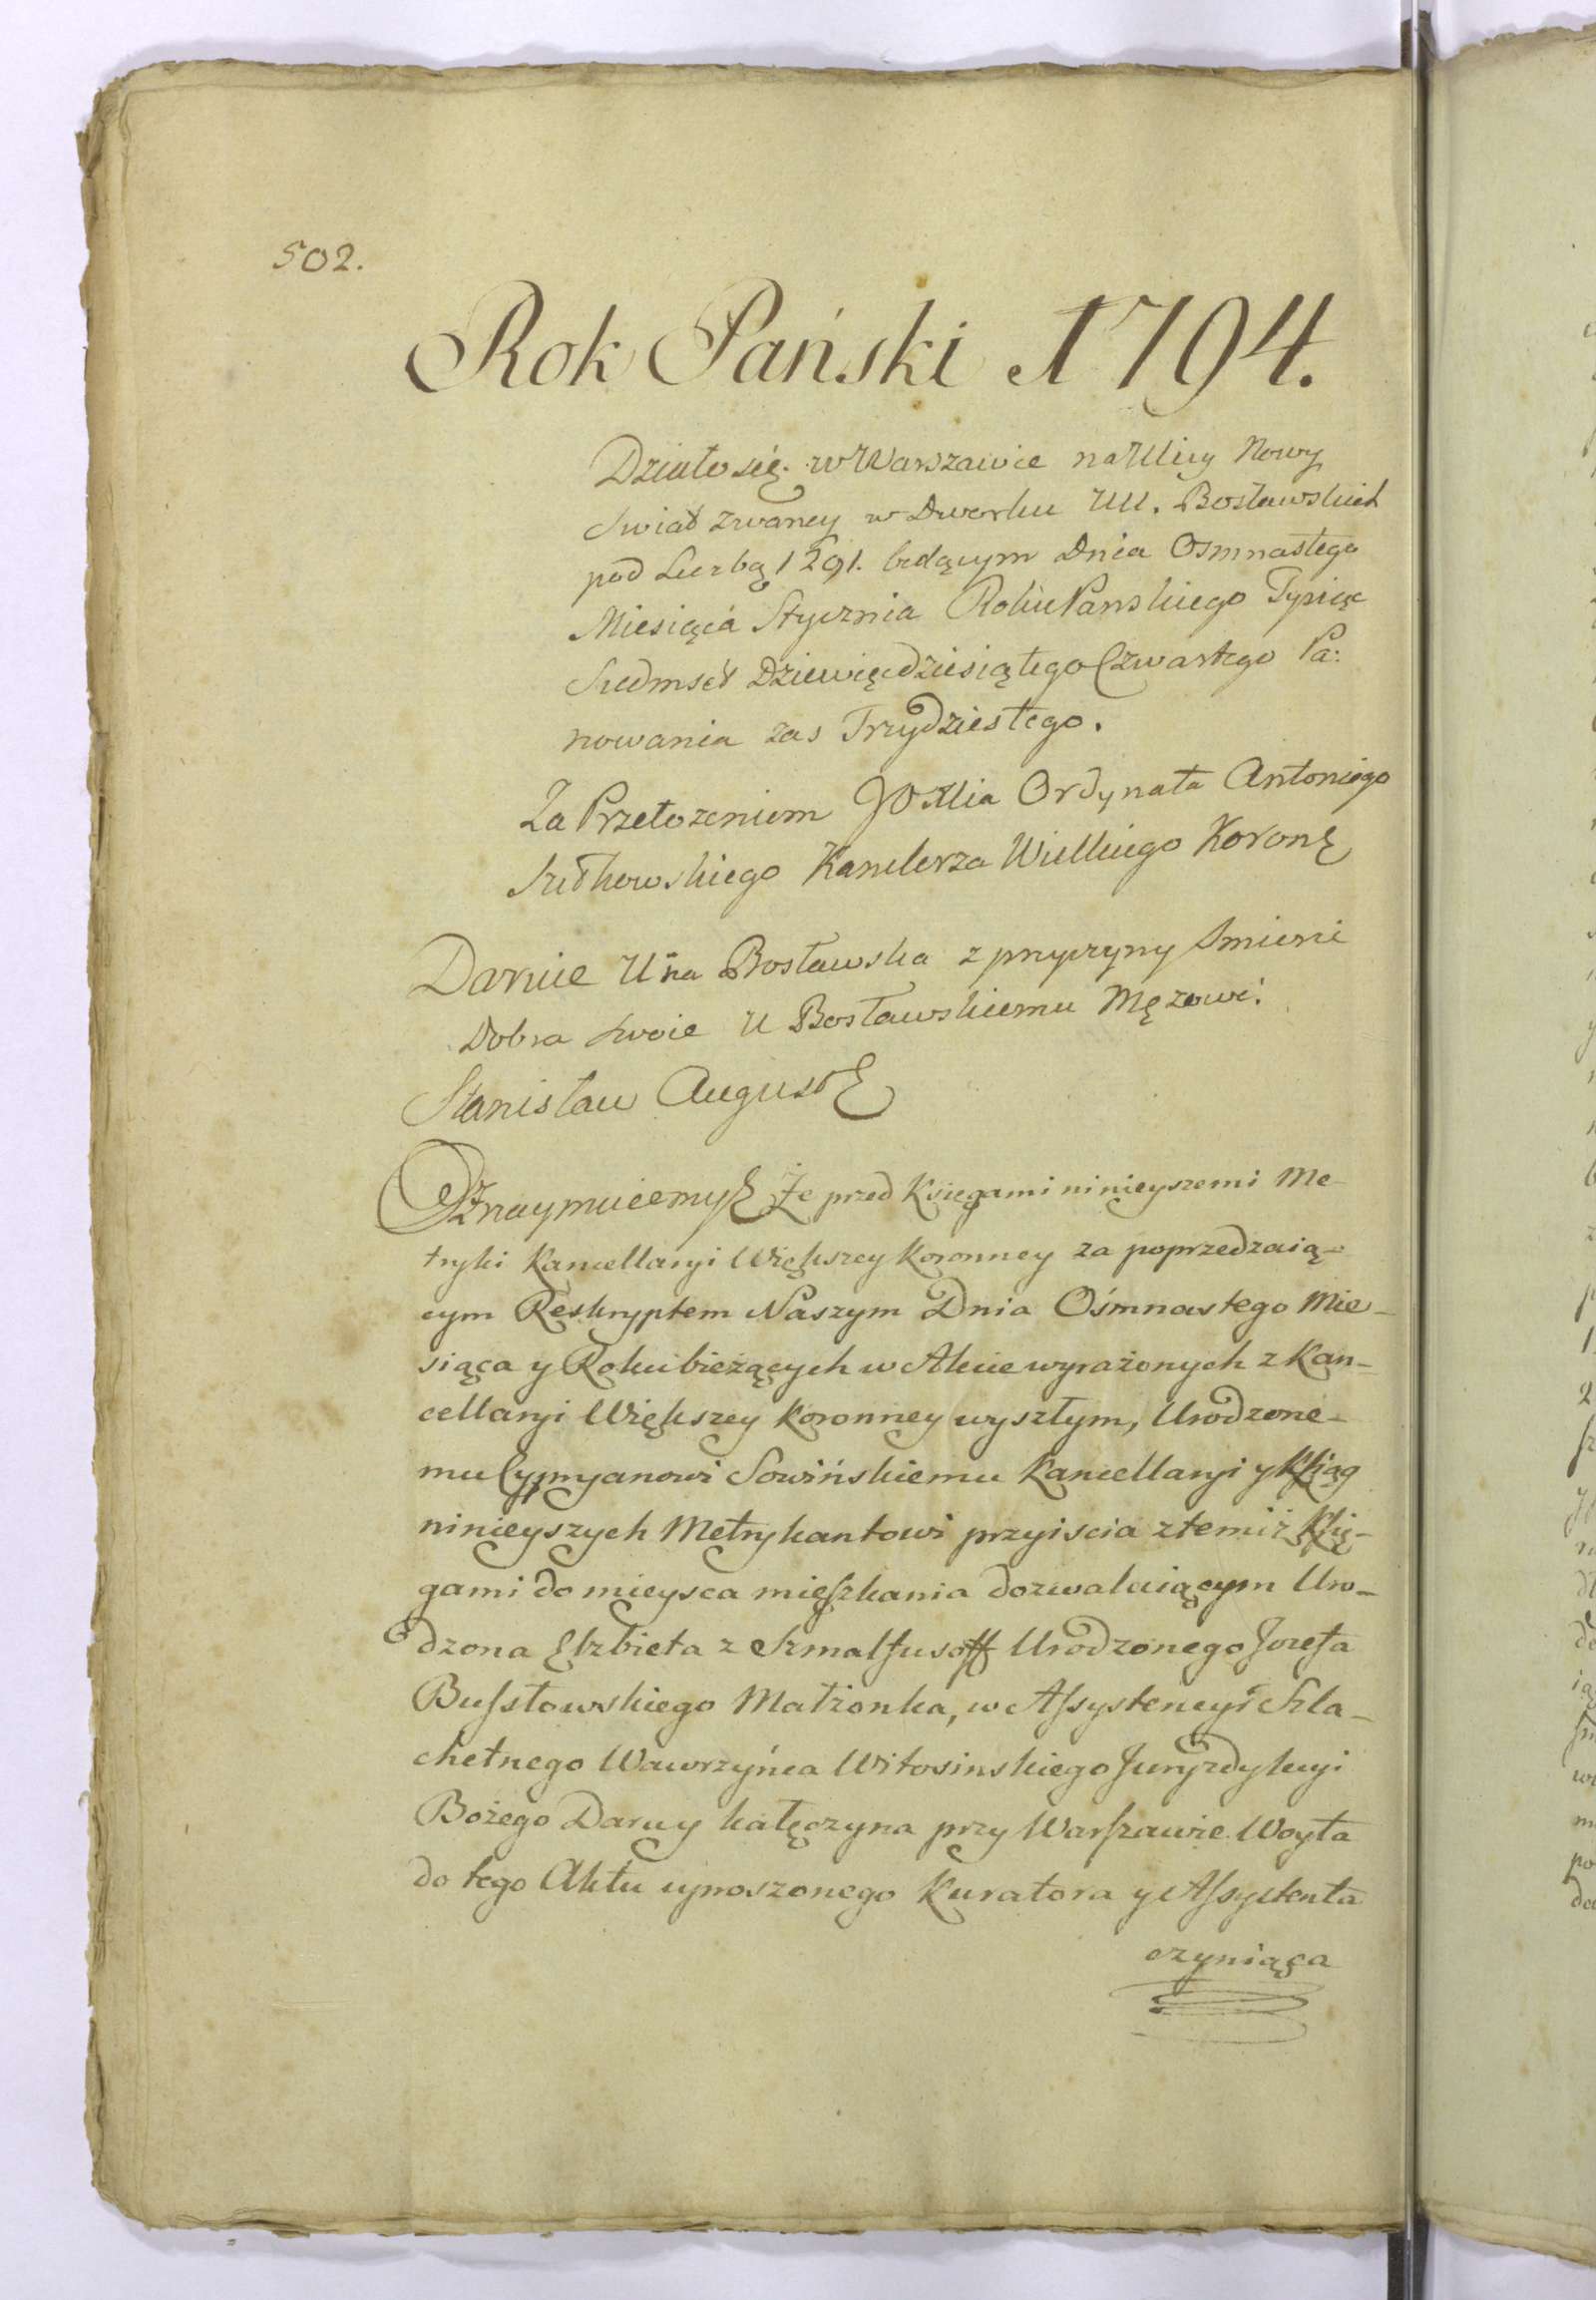 502.
Rok Pański 1794.
Działo się w Warszawie na Ulicy Nowy
Swiat zwaney w Dworku UU. Bosławskich
pod Liczbą 1291. będącym Dnia Osmnastego
Miesiąca Stycznia Roku Panskiego Tysiąc
Siedmset Dziewięcdziesiątego Czwartego Pa:
nowania zas Trzydziestego.
Za Przełozeniem JO Xcia Ordynata Antoniego
Sułkowskiego Kanclerza Wielkiego Koronę
Daruie Una Bosławska z przyczyny Smierci
Dobra swoie U Bosławskiemu Męzowi.
Stanisław August
Oznaymuiemy Że przed Księgami ninieyszemi Me-
tryki Kancellaryi Większey Koronney za poprzedzaią-
cym Reskryptem Naszym Dnia Ośmnastego Mie-
siąca y Roku bieżących w Akcie wyrażonych z Kan-
cellaryi Większey Koronney wyszłym, Urodzone-
mu Cypryanowi Sowińskiemu Kancellaryi y Xsiąg
ninieyszych Metrykantowi przyiscia z temiż Xsię-
gami do mieysca mięszkania dozwalaiącym Uro-
dzona Elzbieta z Szmalfusoff Urodzonego Jozefa
Busstowskiego Małżonka, w Assystencyi Szla-
chetnego Wawrzyńca Witosinskiego Juryzdykcyi
Bożego Daru y kałęczyna przy Warszawie Woyta
do tego Aktu uproszonego Kuratora y Assystenta
czyniąca